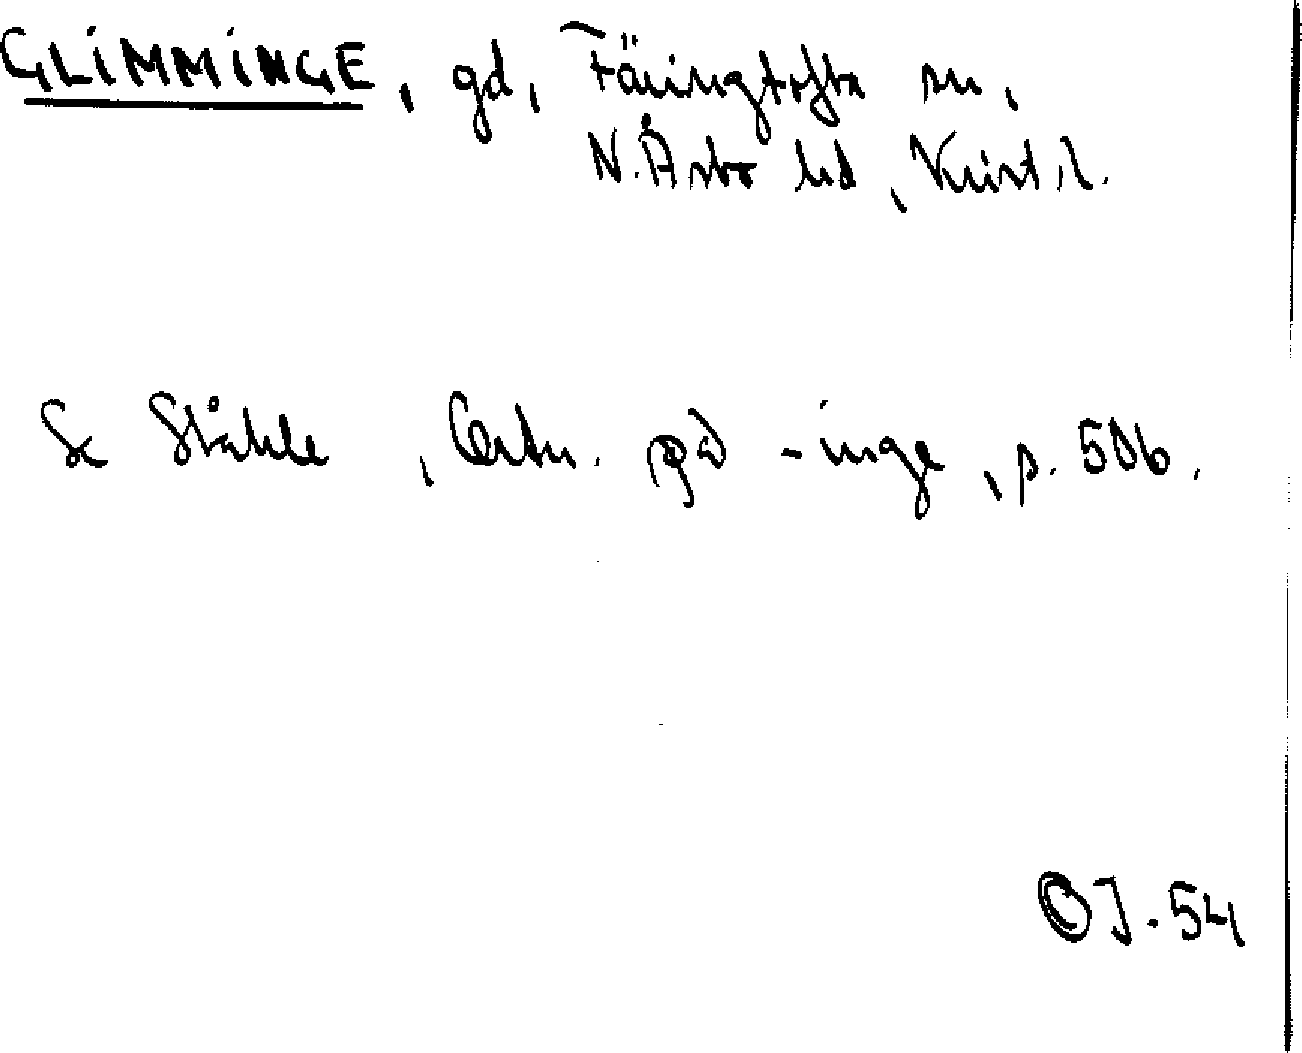 GLIMMINGE, gd, Färingtofta sn,
N. Åsbo hd, Krist. l.
Se Ståhle, Ortn. på -inge, p. 506.
OJ. 54